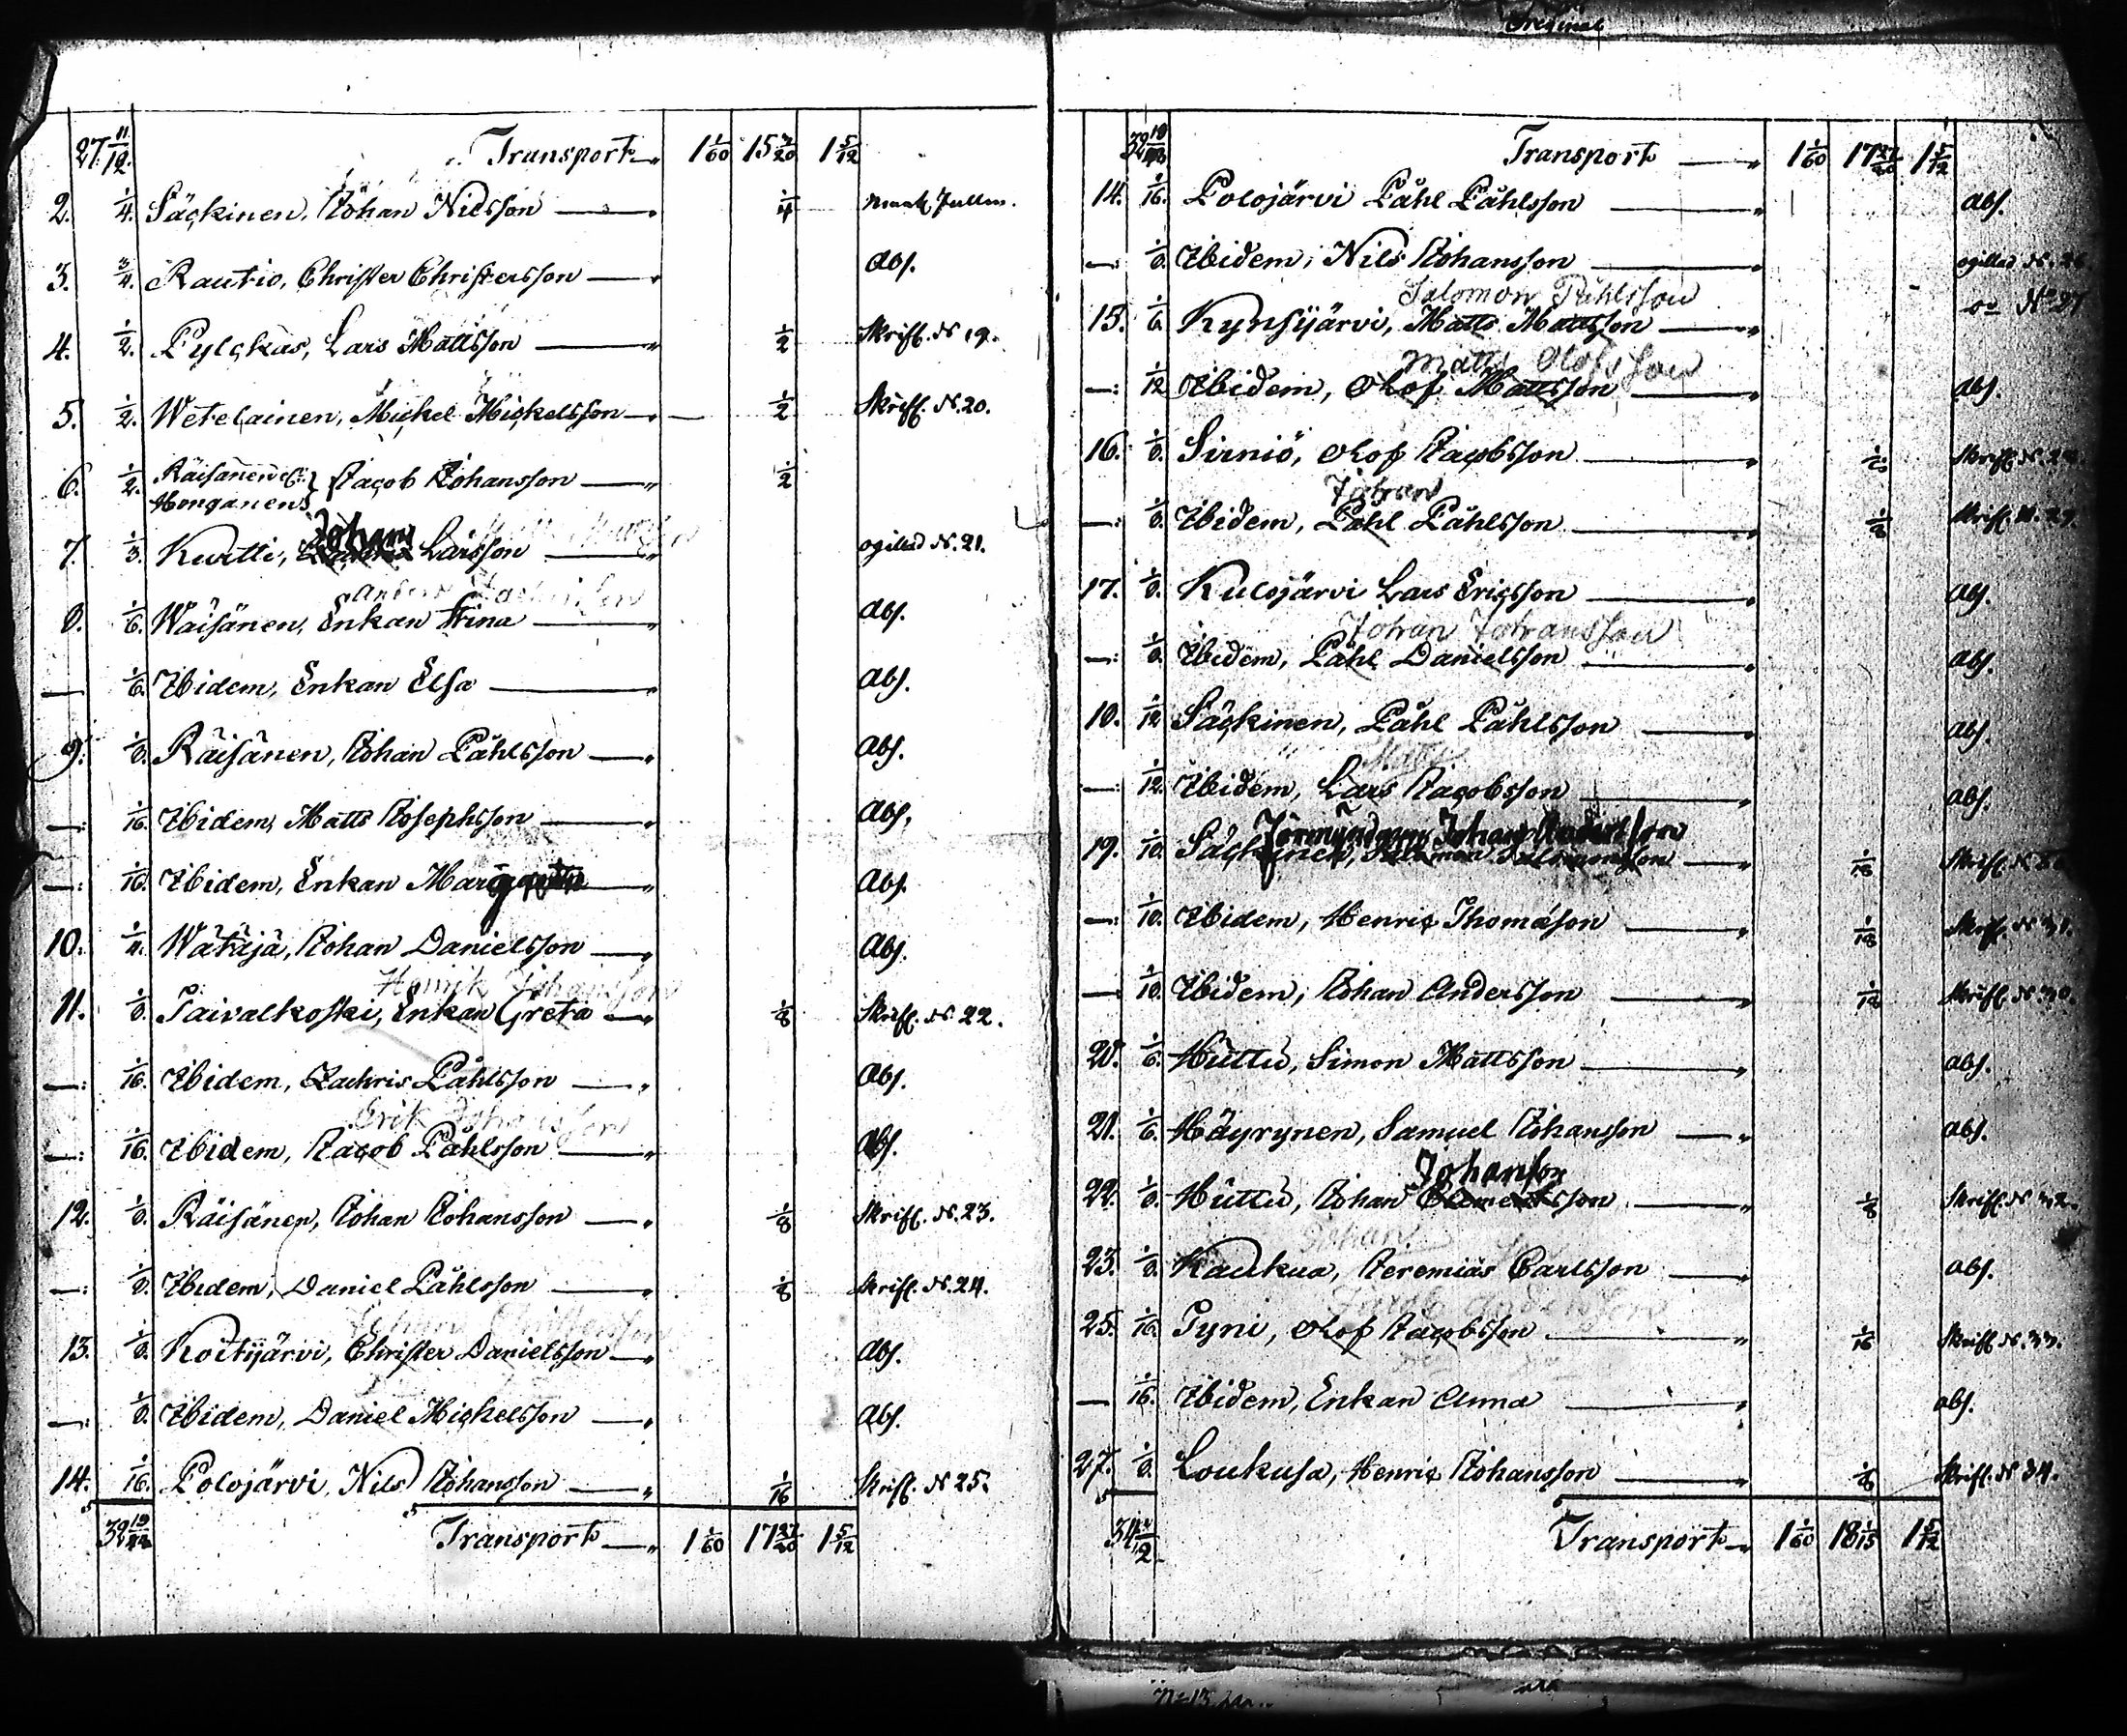 27. 11/12. Transport 1 1/60 15 7/20 1 5/12
2. 1/4. Säckinen, Johan Nilsson 1/4
3. 3/4. Rautio, Christer Christersson Abs.
4. 1/2. Pylckäs, Lars Mattsson 1/2 Skrifl. N. 19.
5. 1/2. Wetelainen, Mickel Mickelsson 1/2 Skrifl. N. 20.
6. 1/2. Räisänen Honganen } Jacob Johansson 1/2
Johan
7. 1/3. Kurtti, Larsson ogillad N. 21.
Anders
8. 1/6. Wäisänen, Enkan Stina Abs.
— 1/6. Ibidem, Enkan Elsa Abs.
9. 1/8. Räisänen, Johan Påhlsson Abs.
—: 1/16. Ibidem, Matts Josephsson Abs.
—: 1/16. Ibidem, Enkan Margareta Abs.
10. 1/4. Wätäjä, Johan Danielsson Abs.
Henrik Johansson
11. 1/8. Taivalkoski, Enkan Greta 1/8 Skrifl. N. 22.
—: 1/16. Ibidem, Zachris Påhlsson Abs.
Erik Johansson
—: 1/16. Ibidem, Jacob Påhlsson Abs.
12. 1/8. Räisänen, Johan Johansson 1/8 Skrifl. N. 23.
—: 1/8. Ibidem, Daniel Påhlsson 1/8 Skrifl. N. 24.
Johan
13. 1/8. Koitijärvi, Christer Danielsson Abs.
—: 1/8. Ibidem, Daniel Mickelsson Abs.
14. 1/16. Polojärvi, Nils Johansson 1/16 Skrifl. N. 25.
Transport 1 1/60 17 27/80 1 5/12
Transport 1 1/60 17 27/80 1 5/12
14. 1/16. Polojärvi Påhl Påhlsson abs.
—: 1/8. Ibidem, Nils Johansson ogillad N. 26.
Salomon Påhlsson
15. 1/6. Kynsijärvi, Matts Mattsson No 27
Matts Olofsson
—: 1/12 Ibidem, Olof Mattsson abs.
16. 1/8. Sirniö, Olof Jacobsson 1/8 Skrifl. N. 28.
Johan
—: 1/8. Ibidem, Påhl Påhlsson 1/8 Skrifl. N. 29.
17. 1/8. Kulojärvi Lars Ericsson abs.
Johan Johansson
—: 1/8. Ibidem, Påhl Danielsson abs.
18. 1/12 Säckinen, Påhl Påhlsson abs.
Matts
—: 1/12. Ibidem, Lars Jacobsson abs.
Förmyndaren Johan Andersson
19. 1/18. Säckinen, Salomon Salomonsson 1/18 Skrifl. N. 30.
—: 1/18. Ibidem, Henric Thomasson 1/18 Skrifl. N. 31.
— 1/18. Ibidem, Johan Andersson 1/18 Skrifl. N. 30.
20. 1/6. Huttu, Simon Mattsson abs.
21. 1/6. Häyrynen, Samuel Johansson abs.
Johansson
22. 1/8. Huttu, Johan Clementsson 1/8 Skrifl. N. 32.
Johan
23. 1/8. Kaukua, Jeremias Carlsson abs.
Jacob Andersson
25. 1/16. Tyni, Olof Jacobsson 1/16 Skrifl. N. 33.
— 1/16. Ibidem, Enkan Anna abs.
27. 1/8. Loukusa, Henric Johansson 1/8 Skrifl. N. 34.
Transport 1 1/60 18 1/15 1 5/12